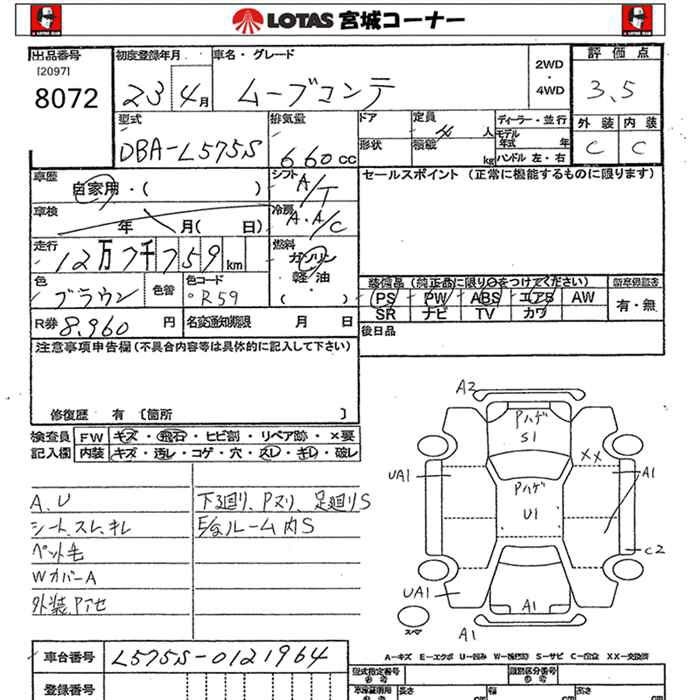 LOTAS 宮城コーナー
出品番号
[2097]
8072
初度登録年月
23 4月
車名・グレード
ムーブコンテ
2WD
・
4WD
評価点
3.5
外装 内装
C C
型式
DBA-L575S
排気量
660cc
ドア
定員
4人
形状
積載
kg
ディーラー・並行
モデル年式 年
ハンドル 左・右
車歴
自家用・( )
シフト
A/T
セールスポイント (正常に機能するものに限ります)
車検
年 月( 日)
冷房
A・A/C
走行
12万7千759km
燃料
ガソリン
軽・油
( )
色
ブラウン
色替
色コード
R59
装備品 (純正品に限り○をつけてください)
PS PW ABS エアB AW
SR ナビ TV カワ
有・無
R券 8,960円
名変通知期限 月 日
後日品
注意事項申告欄 (不具合内容等は具体的に記入して下さい)
修復歴 有 [箇所 ]
検査員記入欄
FW キズ・飛石・ヒビ割・リペア跡・×要
内装 キズ・汚レ・コゲ・穴・スレ・キレ・破レ
A.U
シート、スレ、キレ
ペット毛
WカバーA
下廻り、Pヌリ、足廻りS
E/gルーム内S
A2
Pハゲ
S1
XX
UA1
A1
Pハゲ
U1
C2
UA1
A1
スペア
A1
A-キズ E-エクボ U-凹み W-補修跡 S-サビ C-腐食 XX-交換済
車台番号 L575S-0121964
登録番号
型式指定番号
参考
類別区分番号
参考
長さ cm
幅 cm
高さ cm